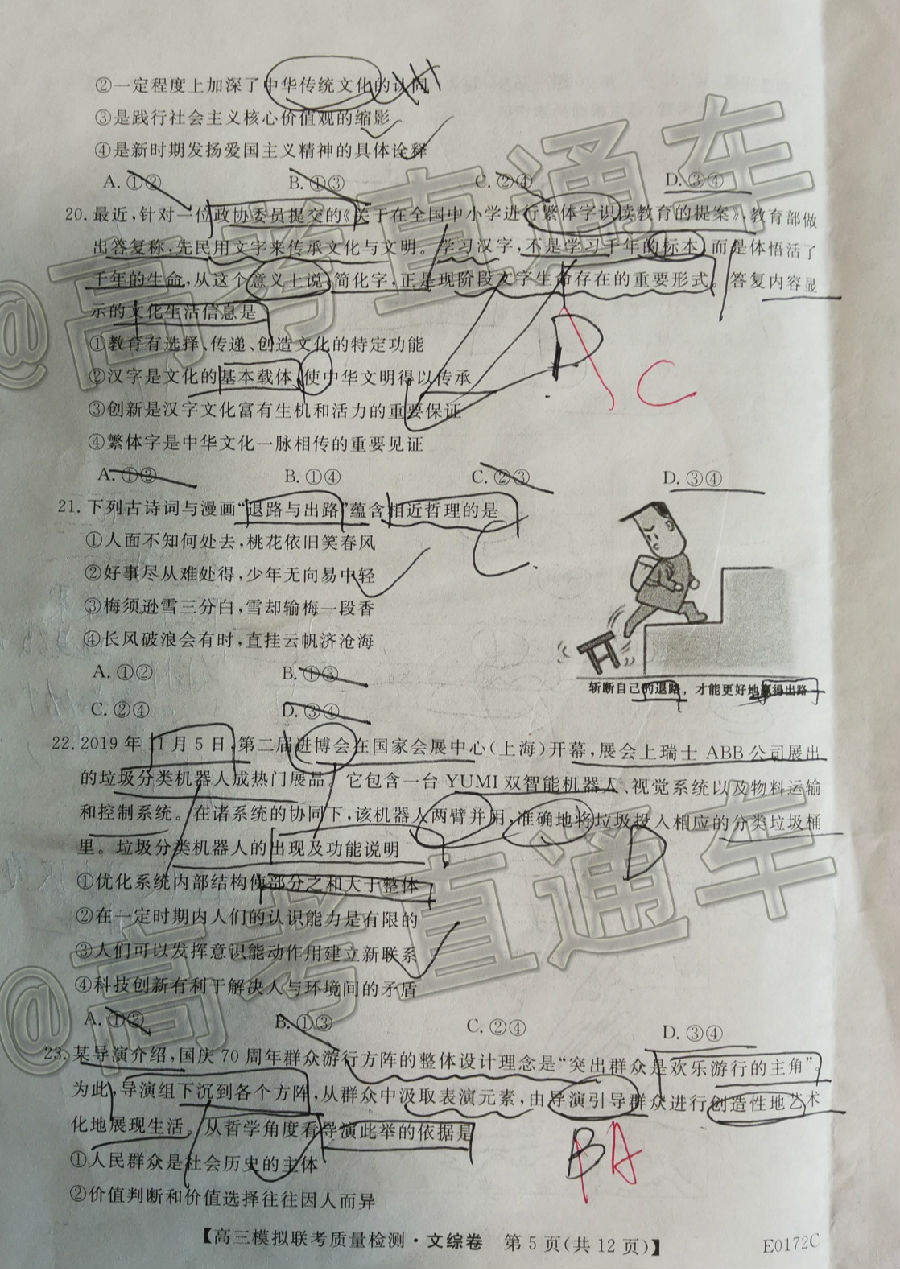 ②一定程度上加深了中华传统文化的认同
③是践行社会主义核心价值观的缩影
④是新时期发扬爱国主义精神的具体诠释
A. ①② B. ①③ C. ②④ D. ③④
20. 最近，针对一位政协委员提交的《关于在全国中小学进行繁体字识读教育的提案》，教育部做
出答复称，先民用文字来传承文化与文明。学习汉字，不是学习千年的标本，而是体悟活了
千年的生命，从这个意义上说，简化字，正是现阶段文字生命存在的重要形式。答复内容显
示的文化生活信息是
①教育有选择、传递、创造文化的特定功能
②汉字是文化的基本载体，使中华文明得以传承
③创新是汉字文化富有生机和活力的重要保证
④繁体字是中华文化一脉相传的重要见证
A. ①② B. ①④ C. ②③ D. ③④
D
C
21. 下列古诗词与漫画“退路与出路”蕴含相近哲理的是
C
①人面不知何处去，桃花依旧笑春风
②好事尽从难处得，少年无向易中轻
③梅须逊雪三分白，雪却输梅一段香
④长风破浪会有时，直挂云帆济沧海
A. ①② B. ①③
C. ②④ D. ③④
斩断自己的退路，才能更好地赢得出路
22. 2019 年 11 月 5 日，第二届进博会在国家会展中心（上海）开幕，展会上瑞士 ABB 公司展出
的垃圾分类机器人成热门展品。它包含一台 YUMI 双智能机器人、视觉系统以及物料运输
和控制系统。在诸系统的协同下，该机器人两臂并用，准确地将垃圾投入相应的分类垃圾桶
里。垃圾分类机器人的出现及功能说明
D
①优化系统内部结构使部分之和大于整体
②在一定时期内人们的认识能力是有限的
③人们可以发挥意识能动作用建立新联系
④科技创新有利于解决人与环境间的矛盾
A. ①② B. ①③ C. ②④ D. ③④
23. 某导演介绍，国庆 70 周年群众游行方阵的整体设计理念是“突出群众是欢乐游行的主角”。
为此，导演组下沉到各个方阵，从群众中汲取表演元素，由导演引导群众进行创造性地艺术
化地展现生活。从哲学角度看导演此举的依据是
B A
①人民群众是社会历史的主体
②价值判断和价值选择往往因人而异
【高三模拟联考质量检测·文综卷 第 5 页（共 12 页）】 E0172C
@高考直通车
@高考直通车